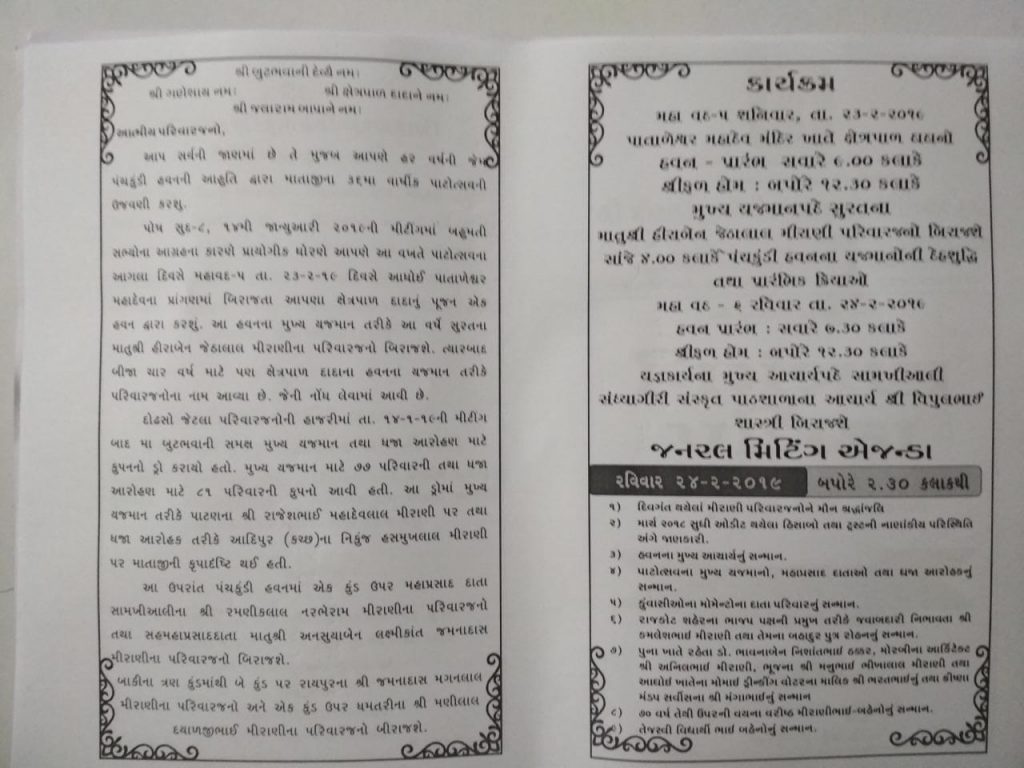 શ્રી બુટભવાની દેવ્યૈ નમઃ
શ્રી ગણેશાય નમઃ શ્રી ક્ષેત્રપાળ દાદાને નમઃ
શ્રી જલારામ બાપાને નમઃ
આત્મીય પરિવારજનો,
આપ સર્વની જાણમાં છે તે મુજબ આપણે હર વર્ષની જેમ
પંચકુંડી હવનની આહુતિ દ્વારા માતાજીના ૩૬મા વાર્ષીક પાટોત્સવની
ઉજવણી કરશુ.
પોષ સુદ-૮, ૧૪મી જાન્યુઆરી ૨૦૧૯ની મીટીંગમાં બહુમતી
સભ્યોના આગ્રહના કારણે પ્રાયોગીક ધોરણે આપણે આ વખતે પાટોત્સવના
આગલા દિવસે મહાવદ-૫ તા. ૨૩-૨-૧૯ દિવસે આધોઈ પાતાળેશ્વર
મહાદેવના પ્રાંગણમાં બિરાજતા આપણા ક્ષેત્રપાળ દાદાનું પૂજન એક
હવન દ્વારા કરશું. આ હવનના મુખ્ય યજમાન તરીકે આ વર્ષે સુરતના
માતુશ્રી હીરાબેન જેઠાલાલ મીરાણીના પરિવારજનો બિરાજશે. ત્યારબાદ
બીજા ચાર વર્ષ માટે પણ ક્ષેત્રપાળ દાદાના હવનના યજમાન તરીકે
પરિવારજનોના નામ આવ્યા છે. જેની નોંધ લેવામાં આવી છે.
દોઢસો જેટલા પરિવારજનોની હાજરીમાં તા. ૧૪-૧-૧૯ની મીટીંગ
બાદ મા બુટભવાની સમક્ષ મુખ્ય યજમાન તથા ધજા આરોહણ માટે
કુપનનો ડ્રો કરાયો હતો. મુખ્ય યજમાન માટે ૭૭ પરિવારની તથા ધજા
આરોહણ માટે ૮૧ પરિવારની કુપનો આવી હતી. આ ડ્રોમાં મુખ્ય
યજમાન તરીકે પાટણના શ્રી રાજેશભાઈ મહાદેવલાલ મીરાણી પર તથા
ધજા આરોહક તરીકે આદિપુર (કચ્છ)ના નિકુંજ હસમુખલાલ મીરાણી
પર માતાજીની કૃપાર્દષ્ટિ થઈ હતી.
આ ઉપરાંત પંચકુંડી હવનમાં એક કુંડ ઉપર મહાપ્રસાદ દાતા
સામખીઆલીના શ્રી રમણીકલાલ નરભેરામ મીરાણીના પરિવારજનો
તથા સહમહાપ્રસાદદાતા માતુશ્રી અનસુયાબેન લક્ષ્મીકાંત જમનાદાસ
મીરાણીના પરિવારજનો બિરાજશે.
બાકીના ત્રણ કુંડમાંથી બે કુંડ પર રાયપુરના શ્રી જમનાદાસ મગનલાલ
મીરાણીના પરિવારજનો અને એક કુંડ ઉપર ધમતરીના શ્રી મણીલાલ
દયાળજીભાઈ મીરાણીના પરિવારજનો બીરાજશે.
કાર્યક્રમ
મહા વદ-૫ શનિવાર, તા. ૨૩-૨-૨૦૧૯
પાતાળેશ્વર મહાદેવ મંદિર ખાતે ક્ષેત્રપાળ દાદાનો
હવન - પ્રારંભ સવારે ૯.૦૦ કલાકે
શ્રીફળ હોમ : બપોરે ૧૨.૩૦ કલાકે
મુખ્ય યજમાનપદે સુરતના
માતુશ્રી હીરાબેન જેઠાલાલ મીરાણી પરિવારજનો બિરાજશે
સાંજે ૪.૦૦ કલાકે પંચકુંડી હવનના યજમાનોની દેહશુદ્ધિ
તથા પ્રારંભિક ક્રિયાઓ
મહા વદ - ૬ રવિવાર તા. ૨૪-૨-૨૦૧૯
હવન પ્રારંભ : સવારે ૭.૩૦ કલાકે
શ્રીફળ હોમ : બપોરે ૧૨.૩૦ કલાકે
યજ્ઞકાર્યના મુખ્ય આચાર્યપદે સામખીઆલી
સંધ્યાગીરી સંસ્કૃત પાઠશાળાના આચાર્ય શ્રી વિપુલભાઈ
શાસ્ત્રી બિરાજશે
જનરલ મિટિંગ એજન્ડા
રવિવાર ૨૪-૨-૨૦૧૯ બપોરે ૨.૩૦ કલાકથી
૧) દિવગંત થયેલાં મીરાણી પરિવારજનોને મૌન શ્રદ્ધાંજલિ
૨) માર્ચ ૨૦૧૮ સુધી ઓડીટ થયેલા હિસાબો તથા ટ્રસ્ટની નાણાંકીય પરિસ્થિતિ
અંગે જાણકારી.
૩) હવનના મુખ્ય આચાર્યનું સન્માન.
૪) પાટોત્સવના મુખ્ય યજમાનો, મહાપ્રસાદ દાતાઓ તથા ધજા આરોહકનું
સન્માન.
૫) કુંવાસીઓના મોમેન્ટોના દાતા પરિવારનું સન્માન.
૬) રાજકોટ શહેરના ભાજપ પક્ષની પ્રમુખ તરીકે જવાબદારી નિભાવતા શ્રી
કમલેશભાઈ મીરાણી તથા તેમના બહાદુર પુત્ર રોહનનું સન્માન.
૭) પુના ખાતે રહેતા ડો. ભાવનાબેન નિશાંતભાઈ ઠક્કર, મોરબીના આર્કિટેક્ટ
શ્રી અનિલભાઈ મીરાણી, ભૂજના શ્રી મનુભાઈ ભીખાલાલ મીરાણી તથા
આધોઈ ખાતેના મોમાઈ ડ્રીન્કીંગ વોટરના માલિક શ્રી ભરતભાઈનું તથા ક્રીષ્ણા
મંડપ સર્વીસના શ્રી મંગાભાઈનું સન્માન
૮) ૭૦ વર્ષ તેથી ઉપરની વયના વરીષ્ઠ મીરાણીભાઈ-બહેનોનું સન્માન.
૯) તેજસ્વી વિદ્યાર્થી ભાઈ બહેનોનું સન્માન.